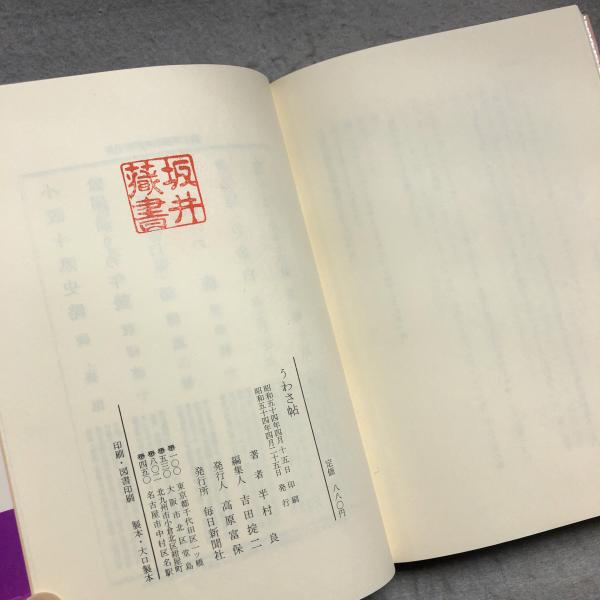 坂井
蔵書
うわさ帖
定価 八八〇円
昭和五十四年四月十五日 印刷
昭和五十四年四月二十五日 発行
著者 半村良
編集人 吉田捷二
発行人 高原富保
発行所 毎日新聞社
〒一〇〇 東京都千代田区一ツ橋
〒五三〇 大阪市北区堂島
〒八〇二 北九州市小倉北区紺屋町
〒四五〇 名古屋市中村区名駅
印刷・図書印刷 製本・大口製本